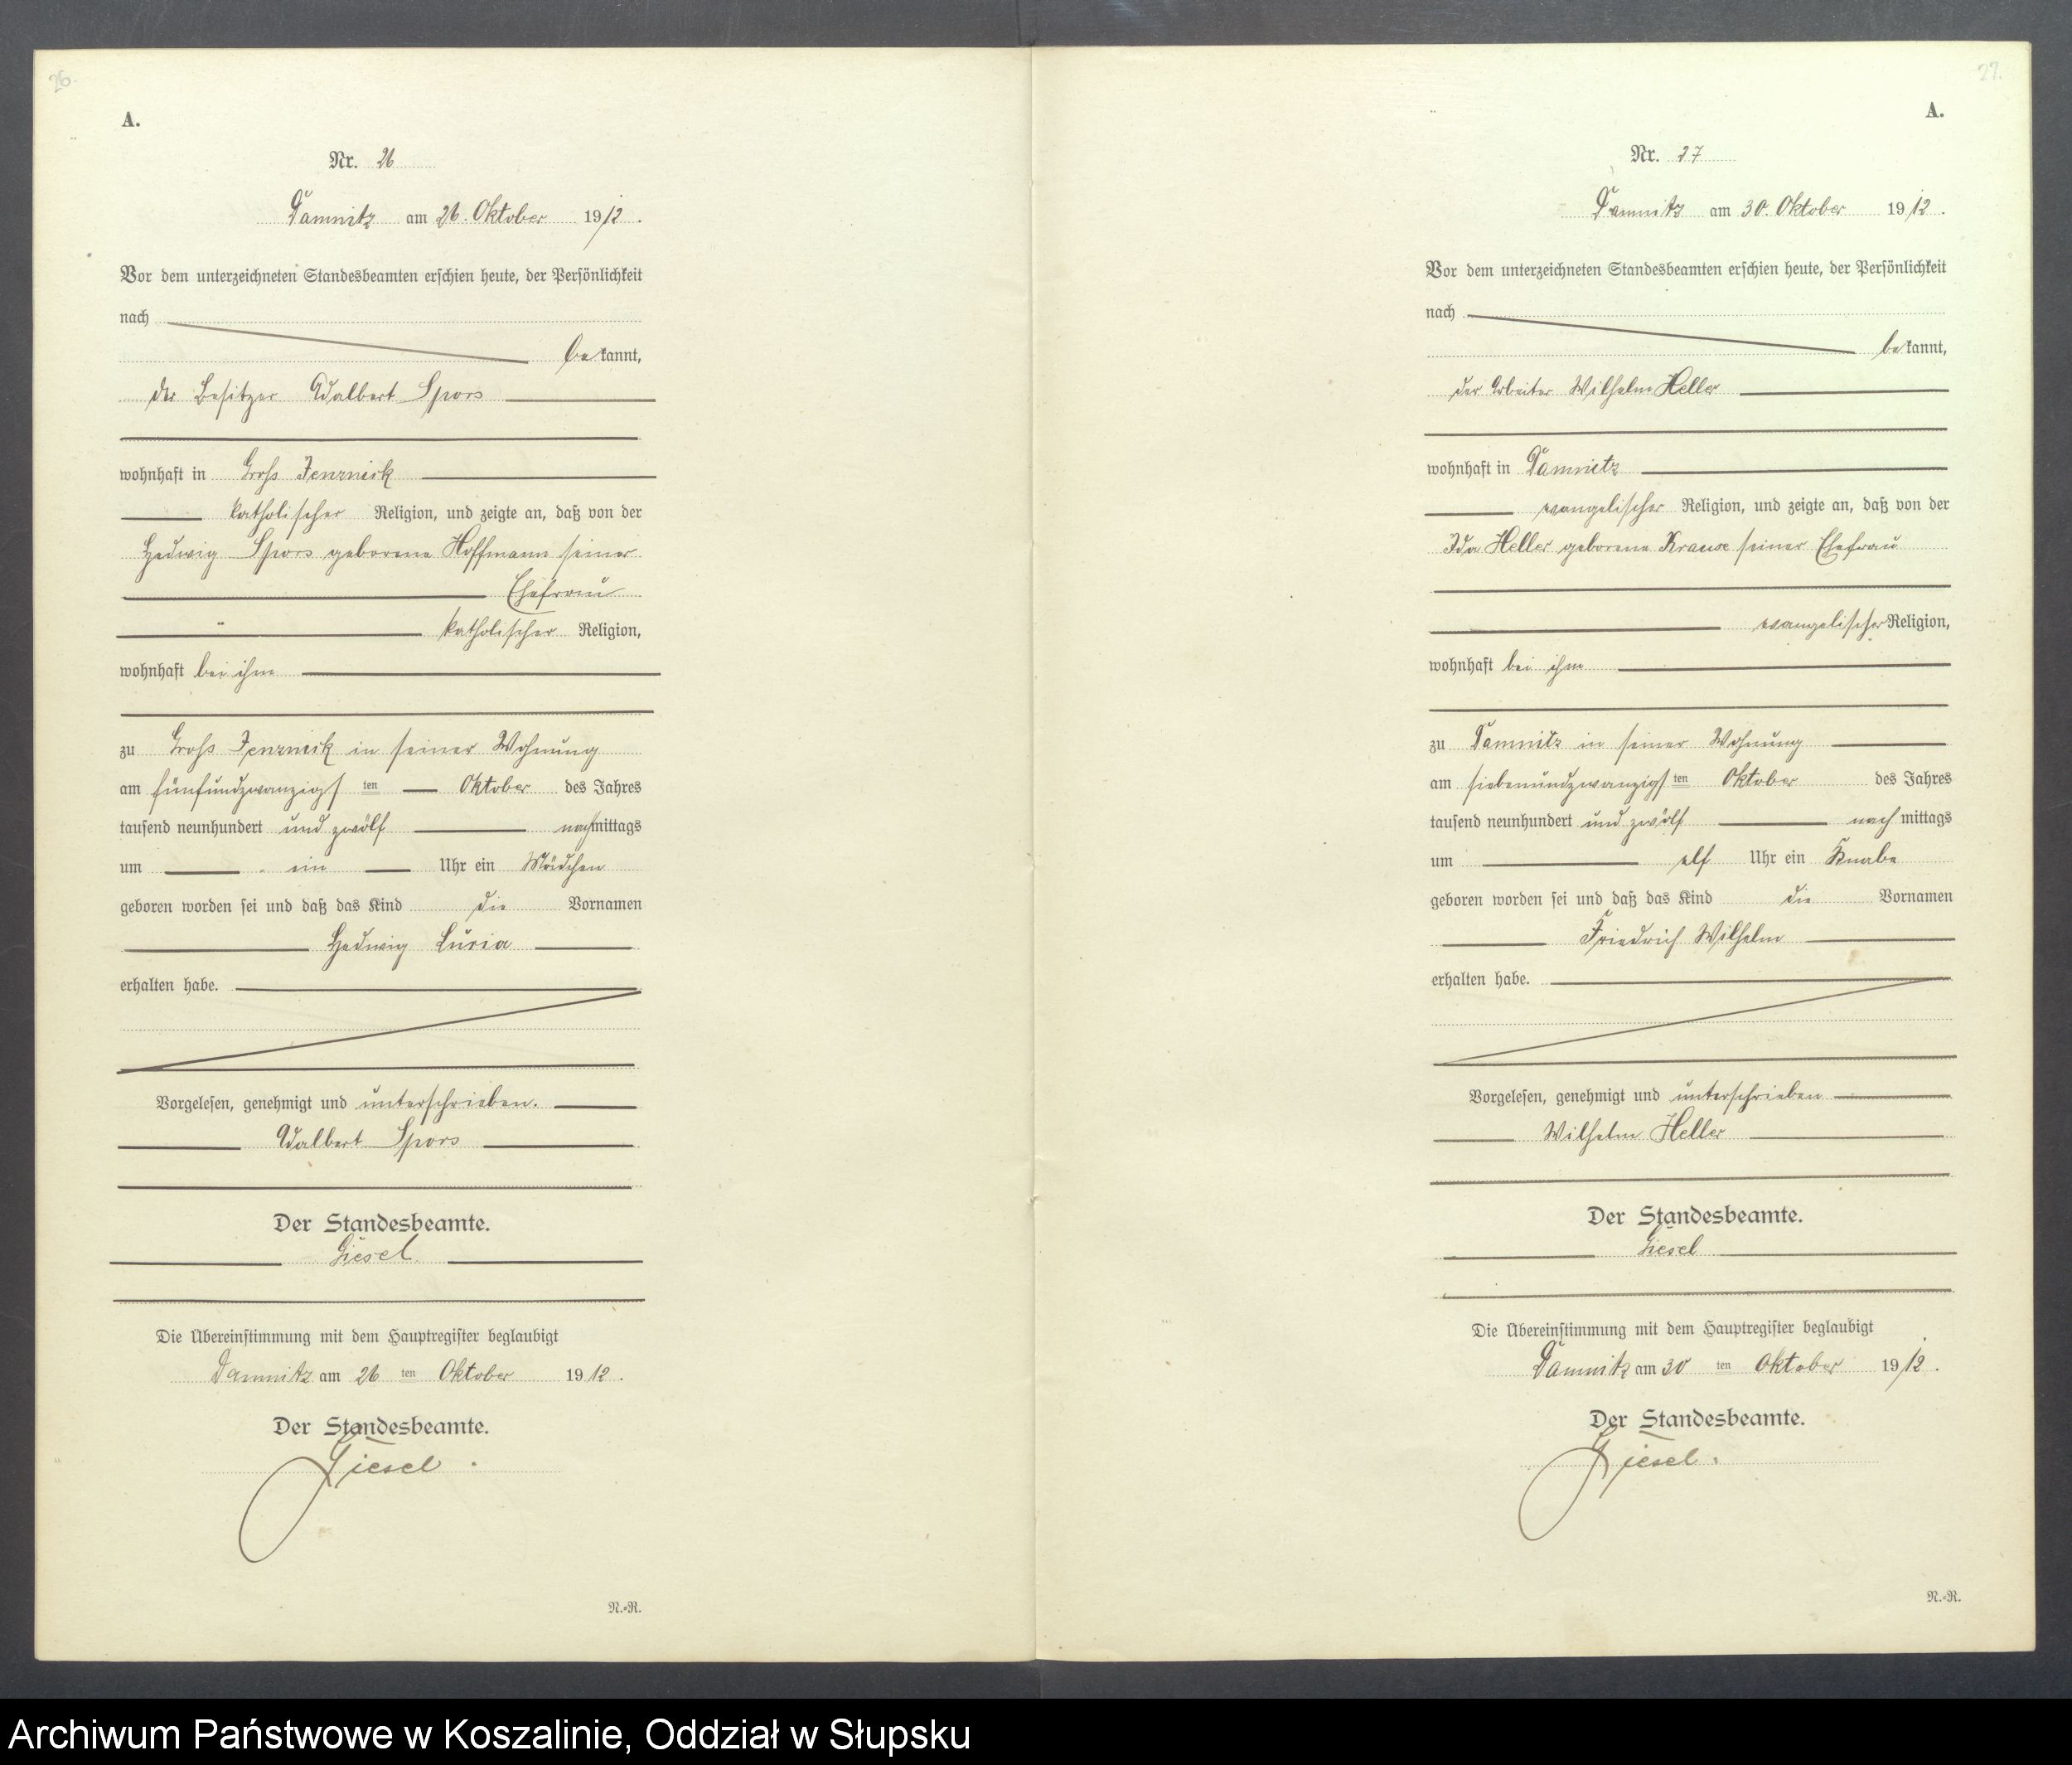 26.
A.
Nr. 26
Damnitz am 26. Oktober 1912.
Vor dem unterzeichneten Standesbeamten erschien heute, der Persönlichkeit
nach
be kannt,
der Besitzer Adalbert Spors
wohnhaft in Groß Jenznick
katholischer Religion, und zeigte an, daß von der
Hedwig Spors geborene Hoffmann seiner
Ehefrau
katholischer Religion,
wohnhaft bei ihm
zu Groß Jenznick in seiner Wohnung
am fünfundzwanzigs ten Oktober des Jahres
tausend neunhundert und zwölf nachmittags
um ein Uhr ein Mädchen
geboren worden sei und daß das Kind die Vornamen
Hedwig
erhalten habe.
Vorgelesen, genehmigt und unterschrieben.
Adalbert Spors
Der Standesbeamte.
Giesel.
Die Übereinstimmung mit dem Hauptregister beglaubigt
Damnitz am 26 ten Oktober 1912.
Der Standesbeamte.
Giesel.
N.-R.
27.
A.
Nr. 27
Damnitz am 30. Oktober 1912.
Vor dem unterzeichneten Standesbeamten erschien heute, der Persönlichkeit
nach
be kannt,
der Arbeiter Wilhelm Heller
wohnhaft in Damnitz
evangelischer Religion, und zeigte an, daß von der
Ida Heller geborene Krause seiner Ehefrau
evangelischer Religion,
wohnhaft bei ihm
zu Damnitz in seiner Wohnung
am siebenundzwanzigs ten Oktober des Jahres
tausend neunhundert und zwölf nach mittags
um elf Uhr ein Knabe
geboren worden sei und daß das Kind die Vornamen
Friedrich Wilhelm
erhalten habe.
Vorgelesen, genehmigt und unterschrieben
Wilhelm Heller
Der Standesbeamte.
Giesel
Die Übereinstimmung mit dem Hauptregister beglaubigt
Damnitz am 30 ten Oktober 1912.
Der Standesbeamte.
Giesel.
N.-R.
Archiwum Państwowe w Koszalinie, Oddział w Słupsku